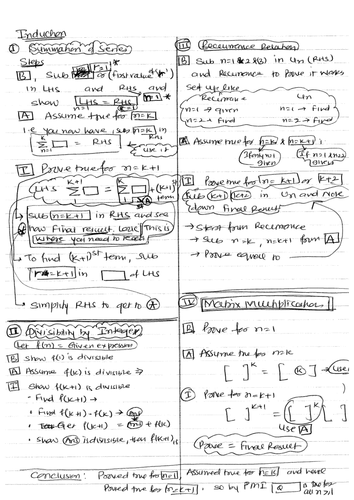 Induction
① Summation of Series
Steps
B, Sub r=1 or (first value of r)
in LHS and RHS and
show LHS = RHS n=1
A Assume true for n=k
i.e you now have, sub n=k in
n=k Σ □ = RHS use it
k=1
I, Prove true for n=k+1
LHS k+1 Σ □ = k Σ □ + (k+1)st term
→ Sub n=k+1 in RHS and see
how Final result looks This is
where you need to reach
→ To find (k+1)st term, sub
r=k+1 in □ of LHS
→ Simplify RHS to get to Ⓐ
II Divisibility by Integer
Let f(n) = Given expression
B Show f(1) is divisible
A Assume f(k) is divisible ⇒
I Show f(k+1) is divisible
• Find f(k+1) →
• Find f(k+1) - f(k) → Ans
• f(k+1) = Ans + f(k)
• Show Ans is divisible, then f(k+1) is
III Recurrence Relation
B Sub n=1 & 2 & 3 in Un (RHS)
and Recurrence to Prove it works
Set up like
Recurrence Un
n=1 → given n=1 → Find
n=2 → Find n=2 → Find
A Assume true for n=k & n=k+1
If only n=1 given If n=1, n=2 given
I Prove true for n=k+1 or k+2
Sub k+1 / k+2 in Un and note
down Final Result
→ Start from Recurrence
→ Sub n=k, n=k+1 from A
→ Prove equal to
IV Matrix Multiplication
B Prove for n=1
A Assume true for n=k
[ ]ᵏ = [ k ] → use
I Prove for n=k+1
[ ]ᵏ⁺¹ = [ ]ᵏ [ ]
use A
Prove = Final result
Conclusion: Proved true for n=1, Assumed true for n=k and have
Proved true for n=k+1, so by PMI □ is true for all n≥1